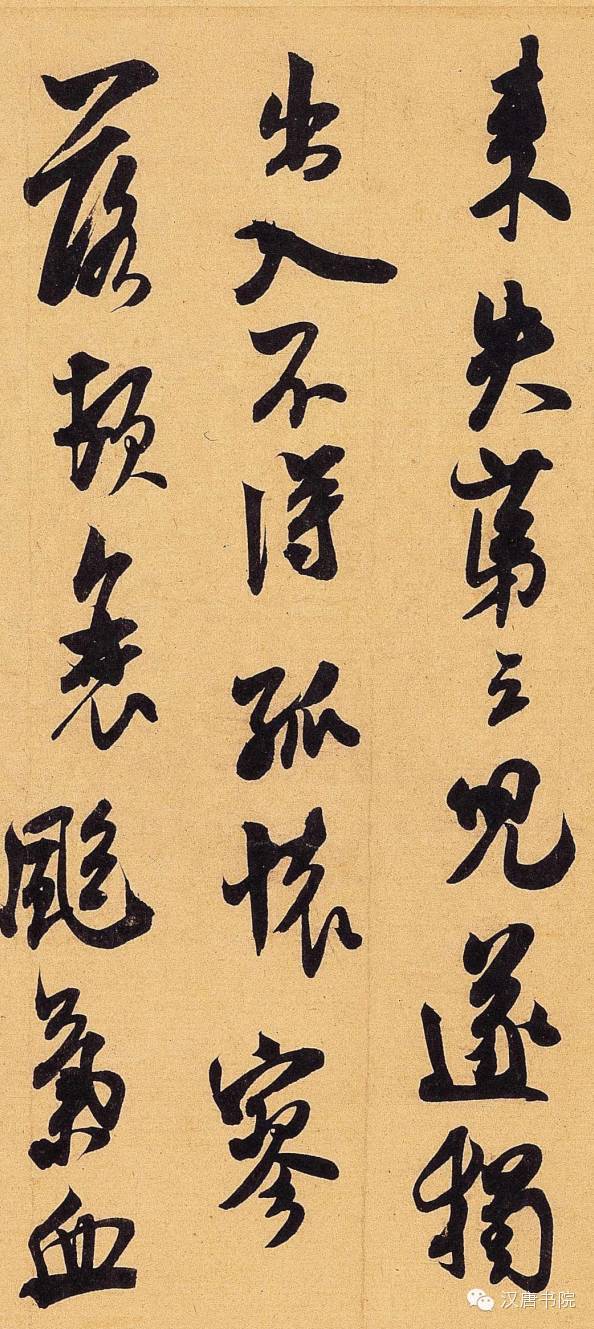 來失第三兒遂獨
出入不得孤懷寥
落頓衰颯氣血
汉唐书院